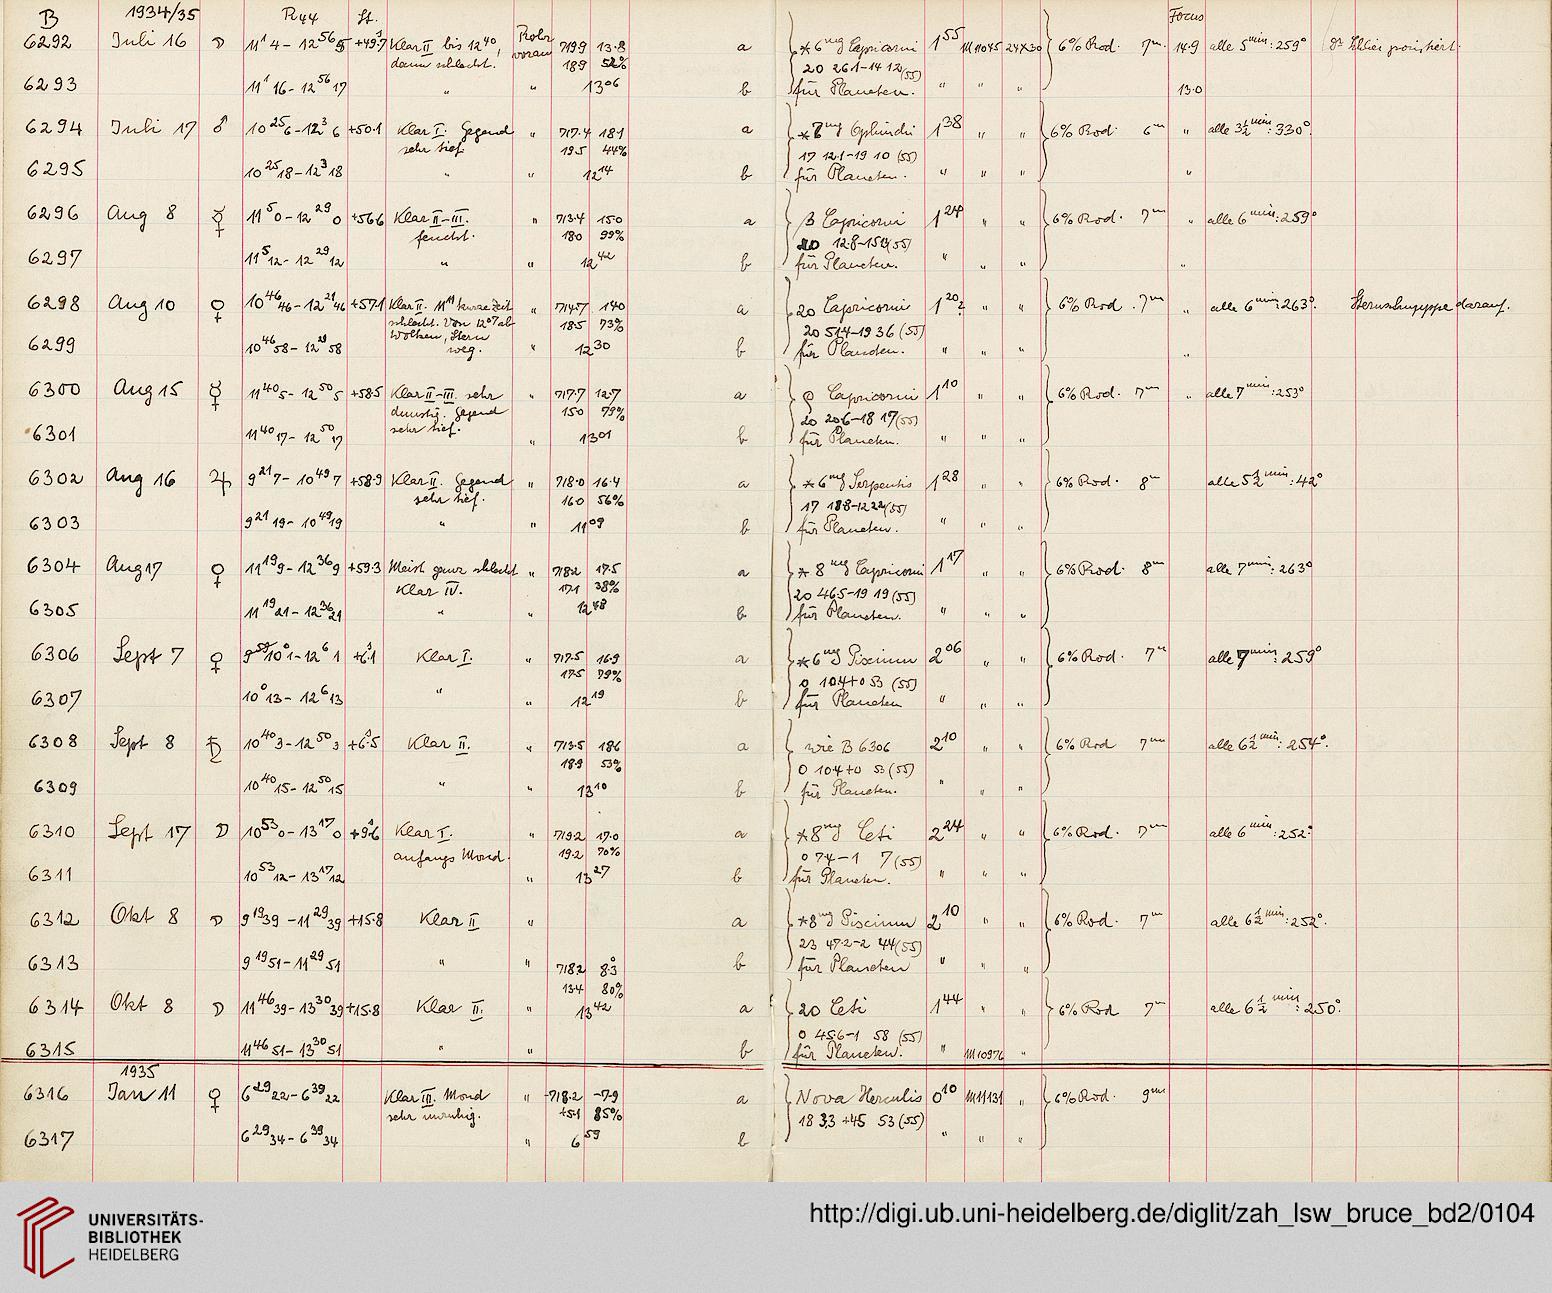 B 1934/35 R44 St. Focus
6292 Juli 16 ☽ 11 1 4 – 12 56 5 +49.7 Klar II bis 12 40, Rohr 719.9 13.8 a *6 mg Capricorni 1 55 M11045 24x30 6% Rod. 7 m. 14.9 alle 5 min: 259° Dr.
dann schlecht. voran 18.9 52% 20 26.1–14 12 (55)
6293 11 1 16 – 12 56 17 " " 13 06 b für Planeten. " " " 13.0
6294 Juli 17 ♂ 10 25 6 – 12 3 6 +50.1 Klar I. Gegend " 717.4 18.1 a *7 mg Ophiuchi 1 38 " " 6% Rod. 6 m " alle 3½ min: 330°.
sehr tief. 19.5 44% 17 12.1–19 10 (55)
6295 10 25 18 – 12 3 18 " " 12 14 b für Planeten. " " " "
6296 Aug 8 ☿ 11 5 0 – 12 29 0 +56.6 Klar II–III. " 713.4 15.0 a β Capricorni 1 24 " " 6% Rod. 7 m " alle 6 min: 259°
feucht. 18.0 99% 20 12.8–15 (55)
6297 11 5 12 – 12 29 12 " " 12 42 b für Planeten. " " " "
6298 Aug 10 ♀ 10 46 46 – 12 21 46 +57.1 Klar II. 11 11 kurze Zeit " 714.7 14.0 a 20 Capricorni 1 20? " " 6% Rod. 7 m " alle 6 min: 263°. Sternschnuppe darauf.
schlecht. Von 12 07 ab 18.5 73% 20 51.4–19 36 (55)
Wolken, Stern
6299 10 46 58 – 12 21 58 weg. " 12 30 b für Planeten. " " " "
6300 Aug 15 ☿ 11 40 5 – 12 50 5 +58.5 Klar II–III. sehr " 717.7 12.7 a ρ Capricorni 1 10 " " 6% Rod. 7 m " alle 7 min: 253°
dunstig. Gegend 15.0 79% 20 20.6–18 17 (55)
6301 11 40 17 – 12 50 17 sehr tief. " 13 01 b für Planeten. " " "
6302 Aug 16 ♃ 9 21 7 – 10 49 7 +58.9 Klar II. Gegend " 718.0 16.4 a *6 mg Serpentis 1 28 " " 6% Rod. 8 m alle 5½ min: 42°
sehr tief. 16.0 56% 17 18.8–12 22 (55)
6303 9 21 19 – 10 49 19 " " 11 09 b für Planeten. " " "
6304 Aug 17 ♀ 11 19 9 – 12 36 9 +59.3 Meist ganz schlecht " 718.2 17.5 a *8 mg Capricorni 1 17 " " 6% Rod. 8 m alle 7 min: 263°
Klar IV. 17.1 38% 20 46.5–19 19 (55)
6305 11 19 21 – 12 36 21 " 12 48 b für Planeten. " " "
6306 Sept 7 ♀ 10 0 1 – 12 6 1 +6.1 Klar I. " 717.5 16.9 a *6 mg Piscium 2 06 " " 6% Rod. 7 m alle 7 min: 259°
17.5 79% 0 10.4+0 53 (55)
6307 10 0 13 – 12 6 13 " " 12 19 b für Planeten " " "
6308 Sept 8 ♄ 10 40 3 – 12 50 3 +6.5 Klar II. " 713.5 18.6 a wie B 6306 2 10 " " 6% Rod 7 m alle 6½ min: 254°.
18.9 53% 0 10.4+0 53 (55)
6309 10 40 15 – 12 50 15 " " 13 10 b für Planeten. " " "
6310 Sept 17 ☽ 10 53 0 – 13 17 0 +9.6 Klar I. " 719.2 17.0 a *8 mg Ceti 2 24 " " 6% Rod. 7 m alle 6 min: 252°
anfangs Mond. 19.2 70% 0 7.4–1 7 (55)
6311 10 53 12 – 13 17 12 " 13 27 b für Planeten. " " "
6312 Okt 8 ☽ 9 19 39 – 11 29 39 +15.8 Klar II " a *8 mg Piscium 2 10 " " 6% Rod. 7 m alle 6½ min: 252°.
23 47.2–2 44 (55)
6313 9 19 51 – 11 29 51 " " 718.2 8.3 b für Planeten " " "
13.4 80%
6314 Okt 8 ☽ 11 46 39 – 13 30 39 +15.8 Klar II. " 13 42 a 20 Ceti 1 44 " " 6% Rod 7 m alle 6½ min: 250°.
0 45.6–1 58 (55)
6315 11 46 51 – 13 30 51 " " b für Planeten. " M10976 "
1935
6316 Jan 11 ♀ 6 29 22 – 6 39 22 Klar III. Mond " 718.2 –7.9 a Nova Herculis 0 10 M11131 " 6% Rod. 9 m
sehr unruhig. +5.1 85% 18 3.3 +45 53 (55)
6317 6 29 34 – 6 39 34 " 6 59 b " " "
UNIVERSITÄTS-
BIBLIOTHEK
HEIDELBERG
http://digi.ub.uni-heidelberg.de/diglit/zah_lsw_bruce_bd2/0104